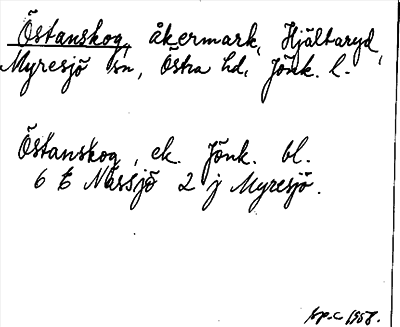 Östanskog, åkermark, Hjältaryd,
Myresjö sn, Östra hd, Jönk. l.
Östanskog, ek. Jönk. bl.
6 E Nässjö 2 j Myresjö.
1958.